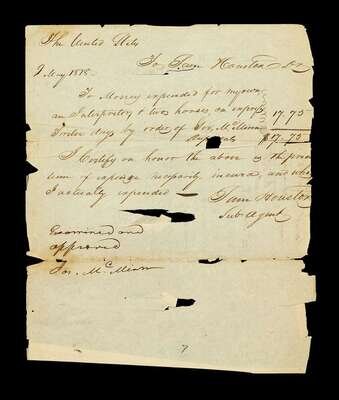 The United States
To Sam Houston Dr
9 May 1818
To Money expended for myown
an Interpreter & two horses on express 17.75
order days by order of Gov. McMinn
$17.75
I Certify on honor the above is the
sum of expenses necessarily incurred, and which
I actually expended —
Sam Houston
Sub Agent
Examined and
approved
Jos. McMinn
7